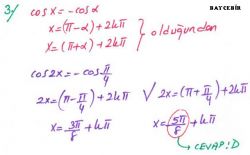 BAYCEBİR
3/ cosx = -cosα
x = (π-α)+2kπ
x = (π+α)+2kπ } olduğundan
cos2x = -cos π/4
2x = (π - π/4) + 2kπ √ 2x = (π + π/4) + 2kπ
x = 3π/8 + kπ x = 5π/8 + kπ
CEVAP: D